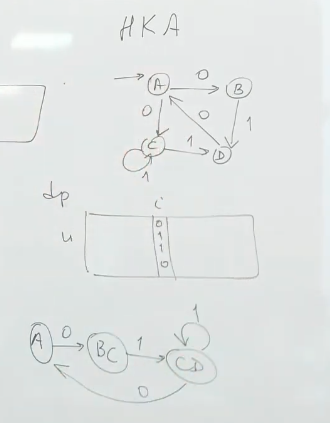 НКА
A 0 B
0 0 1
C 1 D
1
dp i
u 0
1
1
0
1
A 0 BC 1 CD
0